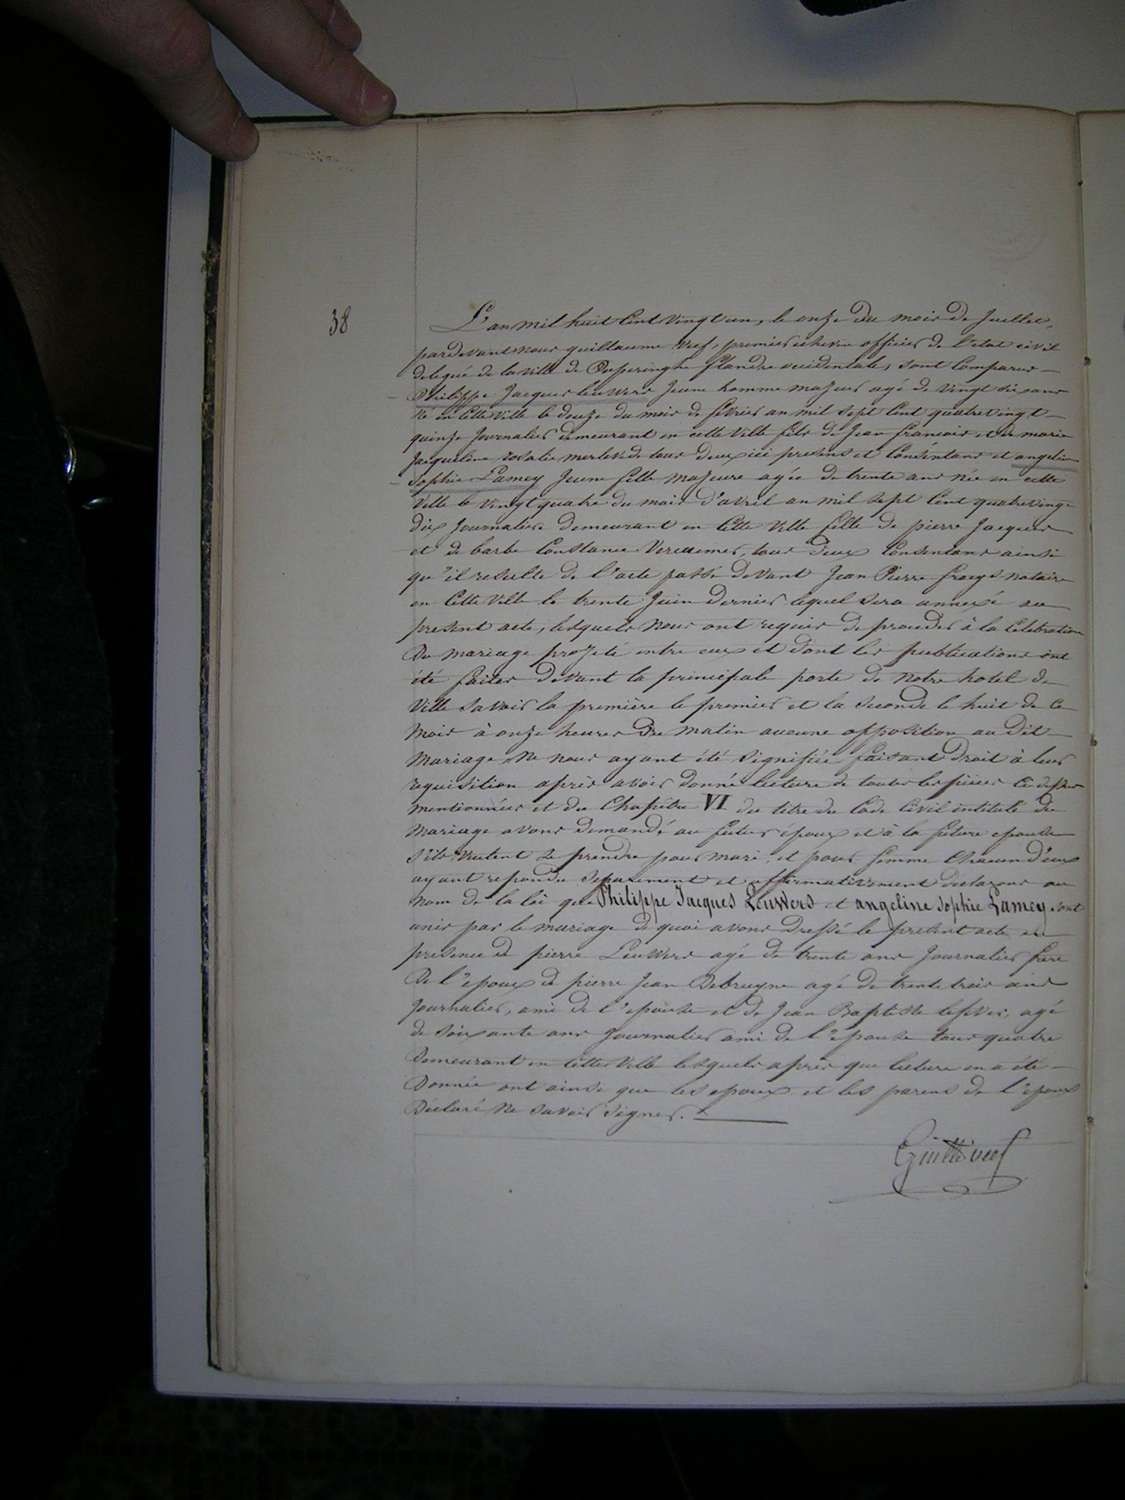 38
L'an mil huit cent vingt un, le onze du mois de Juillet,
pardevant nous guillaume Vref, premier echevin officier de l'etat civil
delegué de la ville de Poperinghe flandre occidentale, sont comparus
Philippe Jacques Leuwers Jeune homme majeur agé de vingt six ans
né en cette ville le douze du mois de fevrier an mil sept cent quatre vingt
quinze Journalier demeurant en cette ville fils de Jean francois et de marie
Jacqueline rosalie merlevede tous deux ici presens et consentans et angeline
Sophie Lamey Jeune fille majeure agée de trente ans née en cette
ville le vingt quatre du mois d'avril an mil sept cent quatre vingt
dix Journaliere demeurant en cette ville fille de pierre Jacques
et de barbe Constance tous deux consentans ainsi
qu'il resulte de l'acte passé devant Jean Pierre notaire
en cette ville le trente Juin dernier lequel sera annexé au
present acte, lesquels nous ont requis de proceder à la celebration
du mariage projeté entre eux et dont les publications ont
été faites devant la principale porte de notre hotel de
ville savoir la première le premier et la seconde le huit de ce
mois à onze heures du matin aucune opposition au dit
mariage ne nous ayant été signifiée faisant droit à leur
requisition après avoir donné lecture de toutes les pièces ci dessus
mentionnées et du chapitre VI du titre du code civil intitulé du
mariage avons demandé au futur époux et à la future epouse
s'ils veulent se prendre pour mari et pour femme chacun d'eux
ayant repondu separement et affirmativement declarons au
nom de la loi que Philippe Jacques Leuwers et angeline Sophie Lamey sont
unis par le mariage de quoi avons dressé le present acte en
presence de pierre Leuwers agé de trente ans Journalier frère
de l'epoux de pierre Jean Debruyne agé de trente trois ans
Journalier, ami de l'epouse et de Jean Baptiste agé
de soixante ans Journalier ami de l'epouse tous quatre
demeurant en cette ville lesquels après que lecture en a été
donnée ont ainsi que les epoux et les parens de l'epoux
déclaré ne savoir signer.